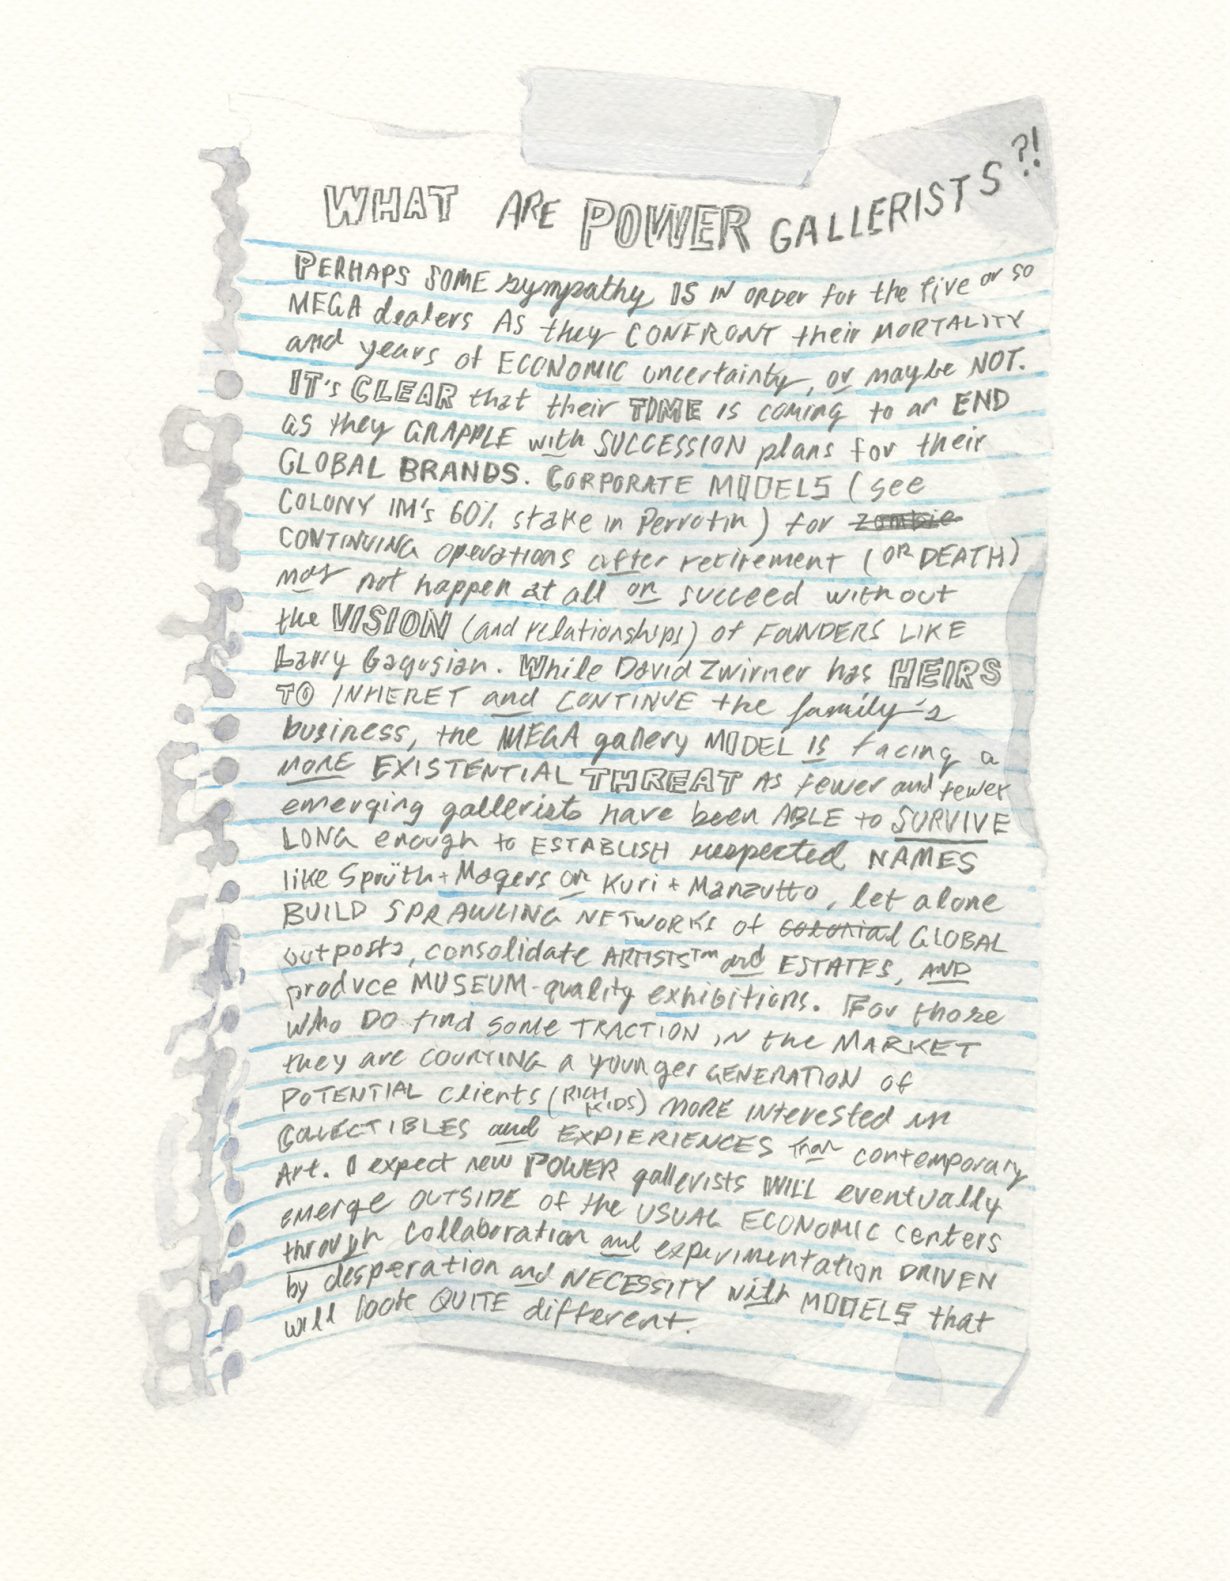 WHAT ARE POWER GALLERISTS?!
PERHAPS SOME sympathy IS IN ORDER for the five or so
MEGA dealers AS they CONFRONT their MORTALITY
and years of ECONOMIC uncertainty, or maybe NOT.
IT'S CLEAR that their TIME is coming to an END
as they GRAPPLE with SUCCESSION plans for their
GLOBAL BRANDS. CORPORATE MODELS (see
COLONY IM's 60% stake in Perrotin) for zombie
CONTINUING operations after retirement (OR DEATH)
may not happen at all or succeed without
the VISION (and relationships) of FOUNDERS LIKE
Larry Gagosian. While David Zwirner has HEIRS
TO INHERET and CONTINUE the family's
business, the MEGA gallery MODEL IS facing a
MORE EXISTENTIAL THREAT AS fewer and fewer
emerging gallerists have been ABLE to SURVIVE
LONG enough to ESTABLISH respected NAMES
like Sprüth + Magers or Kuri + Manzutto, let alone
BUILD SPRAWLING NETWORKS of colonial GLOBAL
outposts, consolidate ARTISTS™ and ESTATES, AND
produce MUSEUM-quality exhibitions. For those
who DO find some TRACTION IN the MARKET
they are COUNTING a younger GENERATION of
POTENTIAL clients (RICH KIDS) MORE INterested in
COLLECTIBLES and EXPIERIENCES than contemporary
Art. I expect new POWER gallerists WILL eventually
emerge OUTSIDE of the USUAL ECONOMIC centers
through collaboration and experimentation DRIVEN
by desperation and NECESSITY with MODELS that
will look QUITE different.